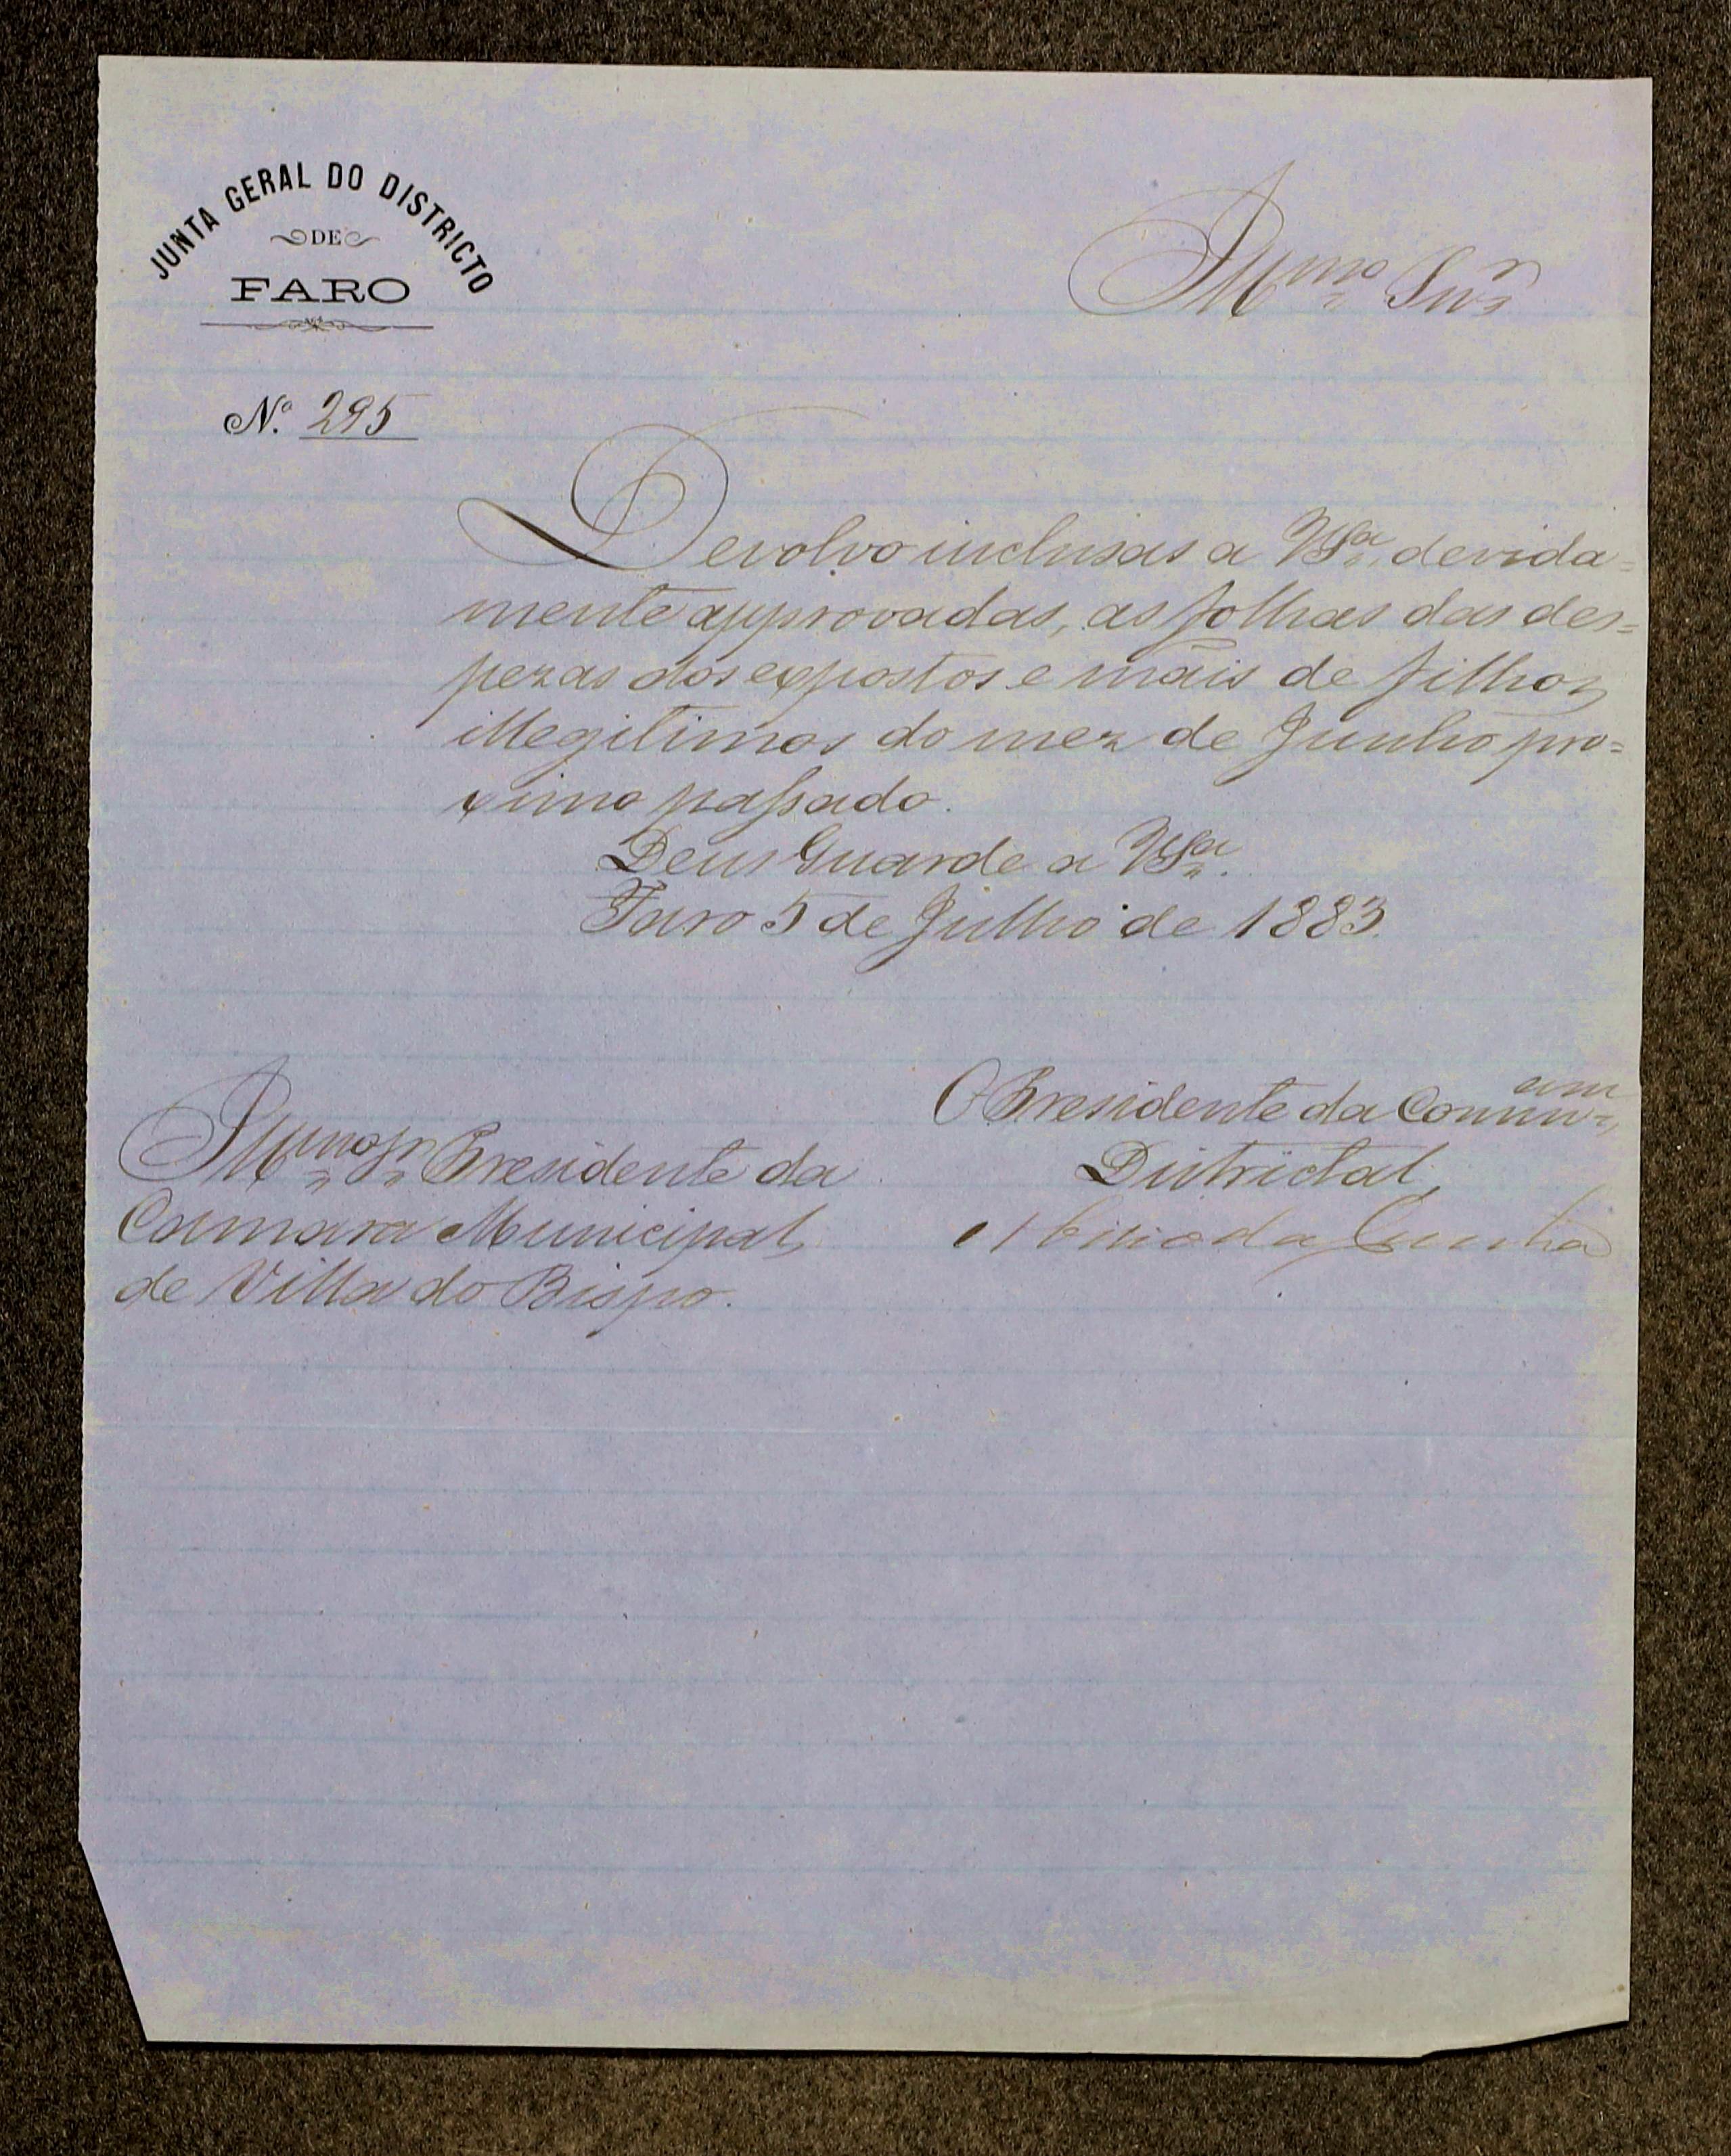 JUNTA GERAL DO DISTRICTO
DE
FARO
Illmo Snr
Nº 295
Devolvo inclusas a VSª, devida=
mente approvadas, as folhas das des=
pezas dos expostos e mais de filhos
illegitimos do mez de Junho pro=
ximo passado.
Deus Guarde a VSª.
Faro 5 de Julho de 1883.
O Presidente da Commam
Districtal,
da Cunha
Illmo Sr Presidente da
Camara Municipal
de Villa do Bispo.